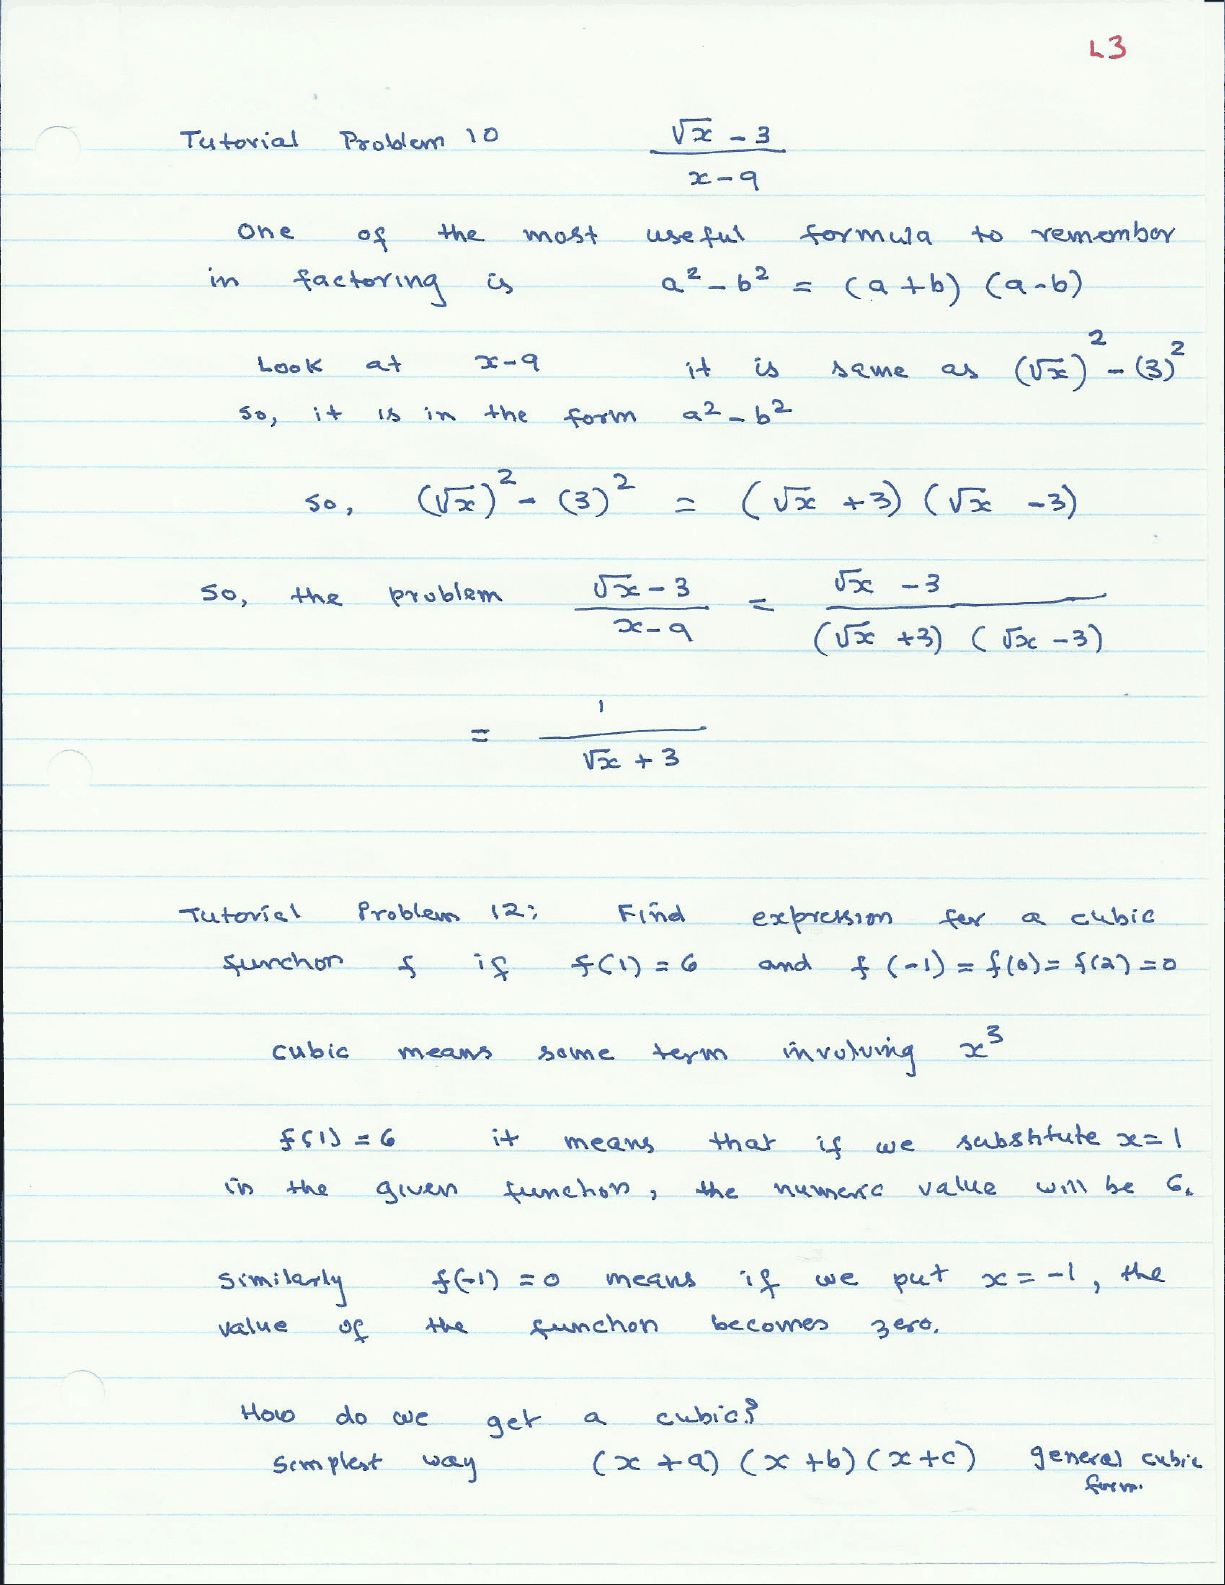 L3
Tutorial Problem 10 √x - 3 / x - 9
One of the most useful formula to remember
in factoring is a² - b² = (a + b) (a - b)
Look at x - 9 it is same as (√x)² - (3)²
So, it is in the form a² - b²
So, (√x)² - (3)² = (√x + 3) (√x - 3)
So, the problem √x - 3 / x - 9 = √x - 3 / (√x + 3) (√x - 3)
= 1 / √x + 3
Tutorial Problem 12: Find expression for a cubic
function f if f(1) = 6 and f(-1) = f(0) = f(2) = 0
cubic means some term involving x³
f(1) = 6 it means that if we substitute x = 1
in the given function, the numeric value will be 6.
Similarly f(-1) = 0 means if we put x = -1, the
value of the function becomes zero.
How do we get a cubic?
Simplest way (x + a) (x + b) (x + c) general cubic
form.